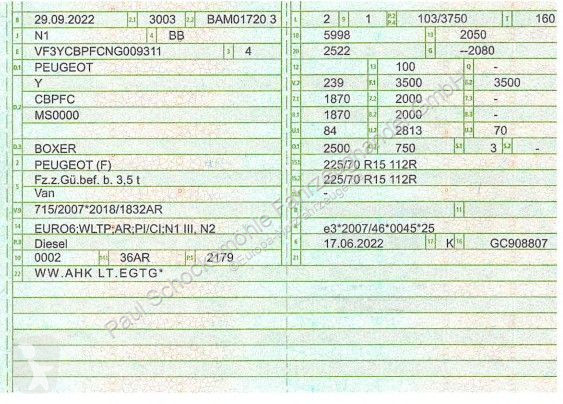 B 29.09.2022 2.1 3003 2.2 BAM01720 3
J N1 4 BB
E VF3YCBPFCNG009311 3 4
D.1 PEUGEOT
Y
D.2 CBPFC
MS0000
D.3 BOXER
2 PEUGEOT (F)
5 Fz.z.Gü.bef. b. 3,5 t
Van
V.9 715/2007*2018/1832AR
14 EURO6;WLTP;AR;PI/CI;N1 III, N2
P.3 Diesel
10 0002 14.1 36AR P.1 2179
22 WW.AHK LT.EGTG*
L 2 9 1 P.2 P.4 103/3750 T 160
18 5998 19 2050
20 2522 G --2080
12 - 13 100 Q -
V.7 239 F.1 3500 F.2 3500
7.1 1870 7.2 2000 7.3 -
8.1 1870 8.2 2000 8.3 -
U.1 84 U.2 2813 U.3 70
O.1 2500 O.2 750 S.1 3 S.2 -
15.1 225/70 R15 112R
15.2 225/70 R15 112R
15.3 -
R 11
K e3*2007/46*0045*25
6 17.06.2022 17 K 16 GC908807
21
Paul Schockemöhle Fahrzeughandel GmbH